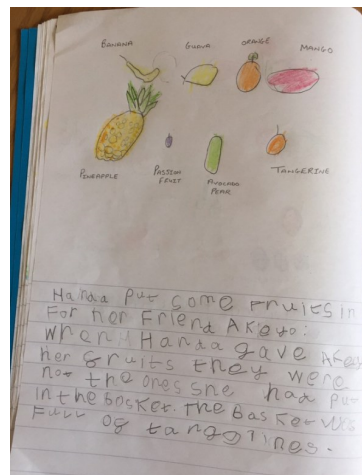 BANANA GUAVA ORANGE MANGO
PINEAPPLE PASSION FRUIT AVOCADO PEAR TANGERINE
Handa Put some Fruits in
For her Friend AKeyo.
when Handa gave AKey
her fruits they were
not the ones she had put
in the basket. The Basket was
Full of tangotines.